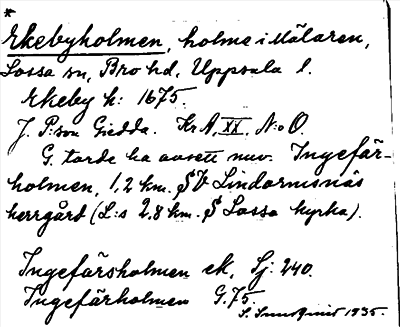 *
Ekebyholmen, holme i Mälaren,
Lossa sn, Bro hd, Uppsala l.
Ekeby h: 1675.
J. P:son Giedda. Kr A XX. N:o O.
G. torde ha avsett nuv. Ingefär-
holmen, 1,2 km. SV Lindormsnäs
herrgård (L:s 2,8 km. S Lossa kyrka).
Ingefärsholmen ek, Sj: 240.
Ingefärholmen G. 75.
S. Sundquist 1935.